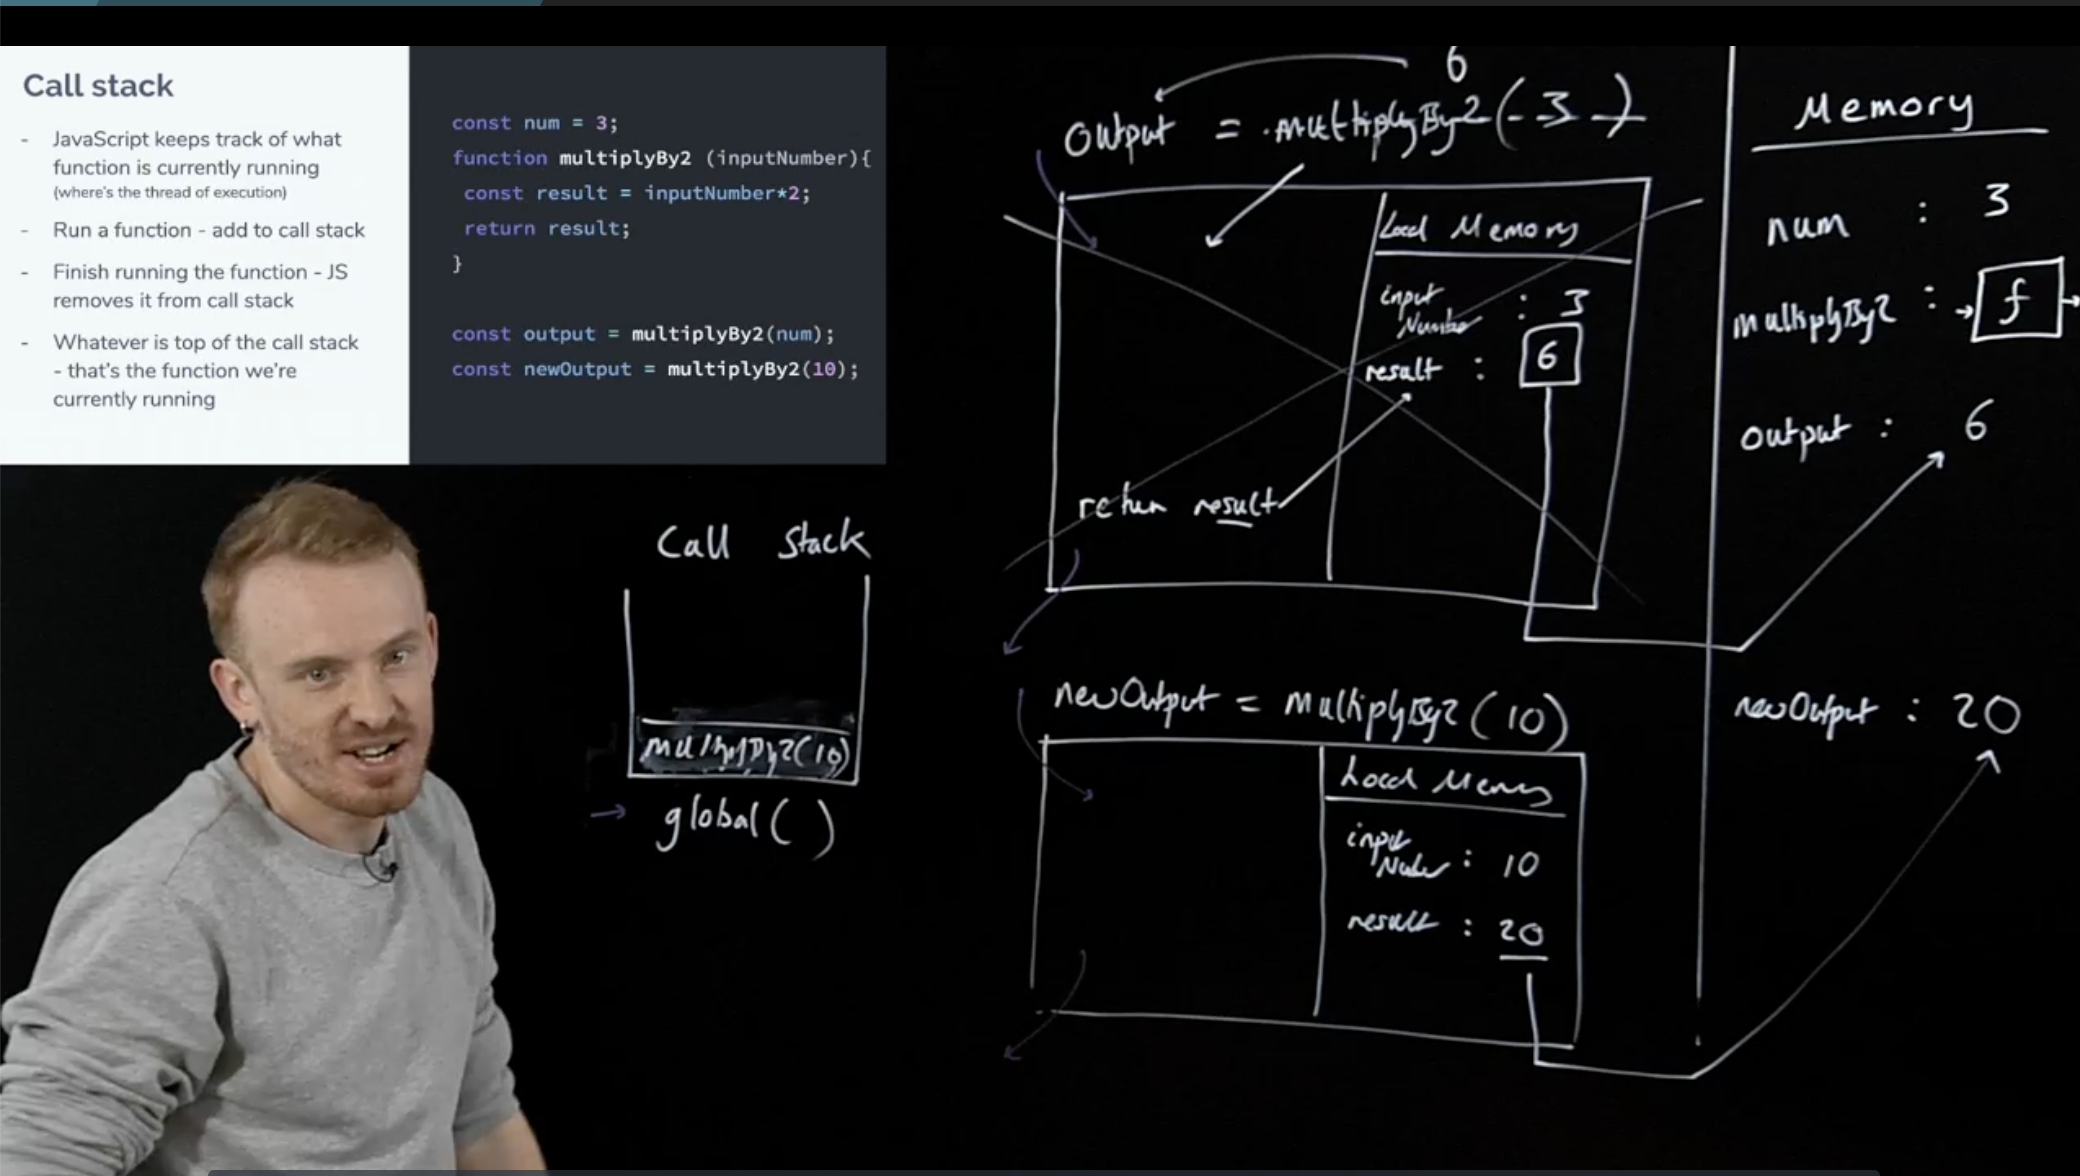 Call stack
- JavaScript keeps track of what
function is currently running
(where's the thread of execution)
- Run a function - add to call stack
- Finish running the function - JS
removes it from call stack
- Whatever is top of the call stack
- that's the function we're
currently running
const num = 3;
function multiplyBy2 (inputNumber){
const result = inputNumber*2;
return result;
}
const output = multiplyBy2(num);
const newOutput = multiplyBy2(10);
Call Stack
multiplyBy2(10)
global()
6
output = multiplyBy2(3)
Local Memory
input
Number : 3
result : 6
return result
newOutput = multiplyBy2(10)
Local Memory
input
Number : 10
result : 20
Memory
num : 3
multiplyBy2 : f
output : 6
newOutput : 20